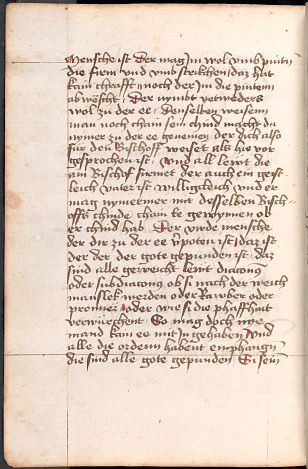 Mensche ist der mag In wol vmb pintn
die firm vnd vmb strikchen daz hat
kain chrafft noch der In die pinten
ab wescht Der nymbt yetweders
wol zu der ee Denselben weisem
man noch chain sein chind macht du
nymer zu der ee genemen der dich also
für den Bischoff weiset als hie vor
gesprochen ist vnd all lewt die
ain Bischof firmet der auch ein geist
leich vater ist williglleich vnd er
mag nymermer mit desselben Bisch
offs chinde chain ee gewynnen ob
er chind hab Der vierde mensche
der dir zu der ee vpoten ist daz ist
der der got gepunden ist daz
sind alle geweicht lewt diacon
oder subdiacon ob si nach der weich
manslek werden oder Rawber oder
prenner oder wie si die phaffhait
verwürchent So mag doch nye
mand kain ee mit In gehaben Vnd
alle die ordenn habent emphangn
die sind alle gote gepunden Si sein